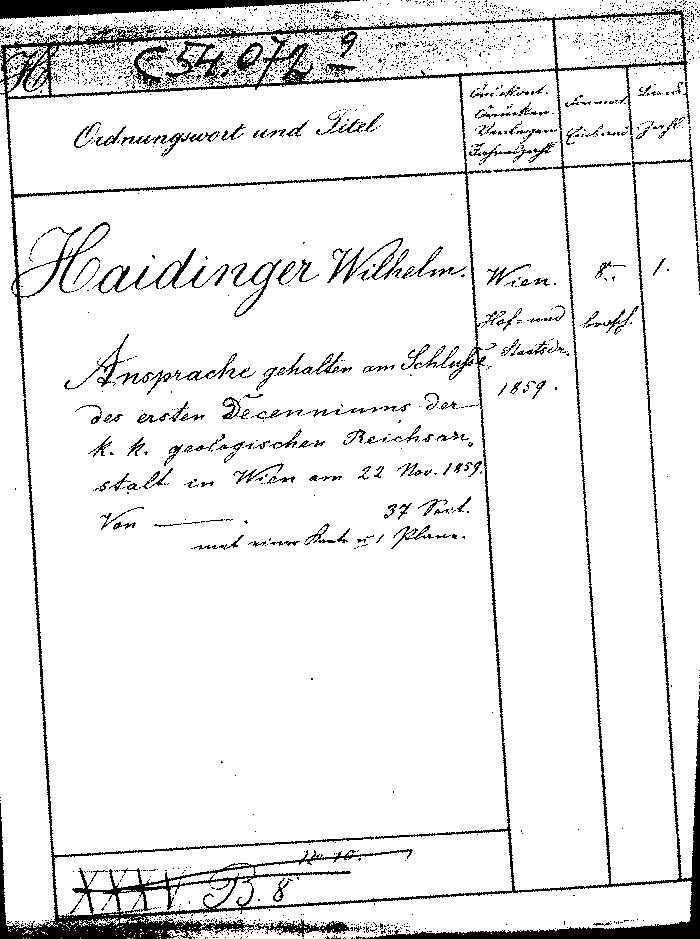 H
C 54.072 9
Ordnungswort und Titel
Druckort.
Drucker.
Verleger
Jahreszahl
Format
Einband
Band-
Zahl
Haidinger Wilhelm.
Wien.
Hof- und
Staatsdr.
1859.
8.
brosch.
1.
Ansprache gehalten am Schluße
des ersten Decenniums der
k. k. geologischen Reichsan-
stalt in Wien am 22 Nov. 1859.
Von —— . 37 Seit.
mit einer Karte u 1 Plane.
No 10.
XXXV. B. 8